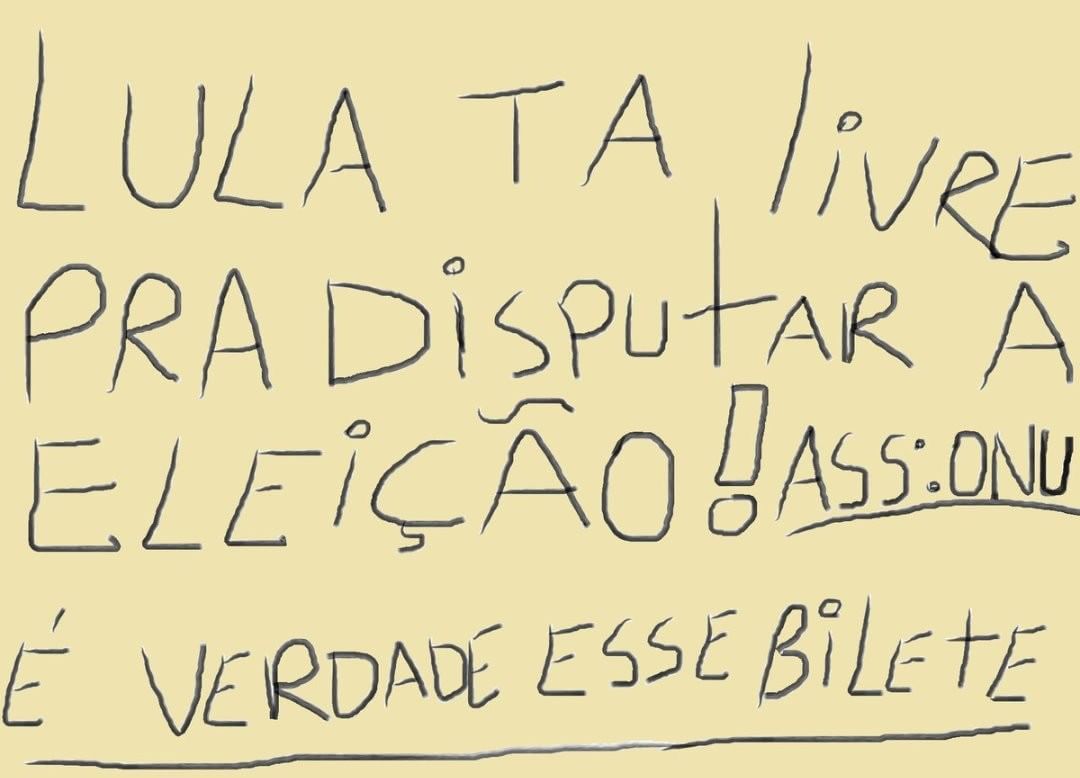 LULA TA liVRE
PRA DiSPUtAR A
ELEiÇÃO! ASS:ONU
É VERDADE ESSE BiLEtE